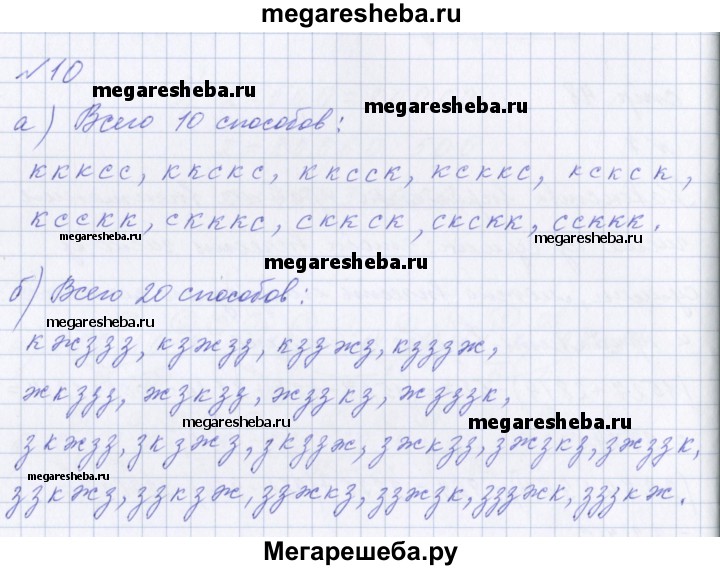 megaresheba.ru
№10
megaresheba.ru
megaresheba.ru
а) Всего 10 способов:
кккcc, ккскс, кксск, ксккс, кскск,
ксскк, скккс, сккск, скскк, ссккк.
megaresheba.ru
megaresheba.ru
megaresheba.ru
б) Всего 20 способов:
megaresheba.ru
кжззз, кзжзз, кззжз, кзззж,
жкззз, жзкзз, жззкз, жзззк,
megaresheba.ru
megaresheba.ru
зкжзз, зкзжз, зкззж, зжкзз, зжзкз, зжззк,
megaresheba.ru
ззкжз, ззкзж, ззжкз, ззжзк, зззжк, зззкж.
Мегарешеба.ру